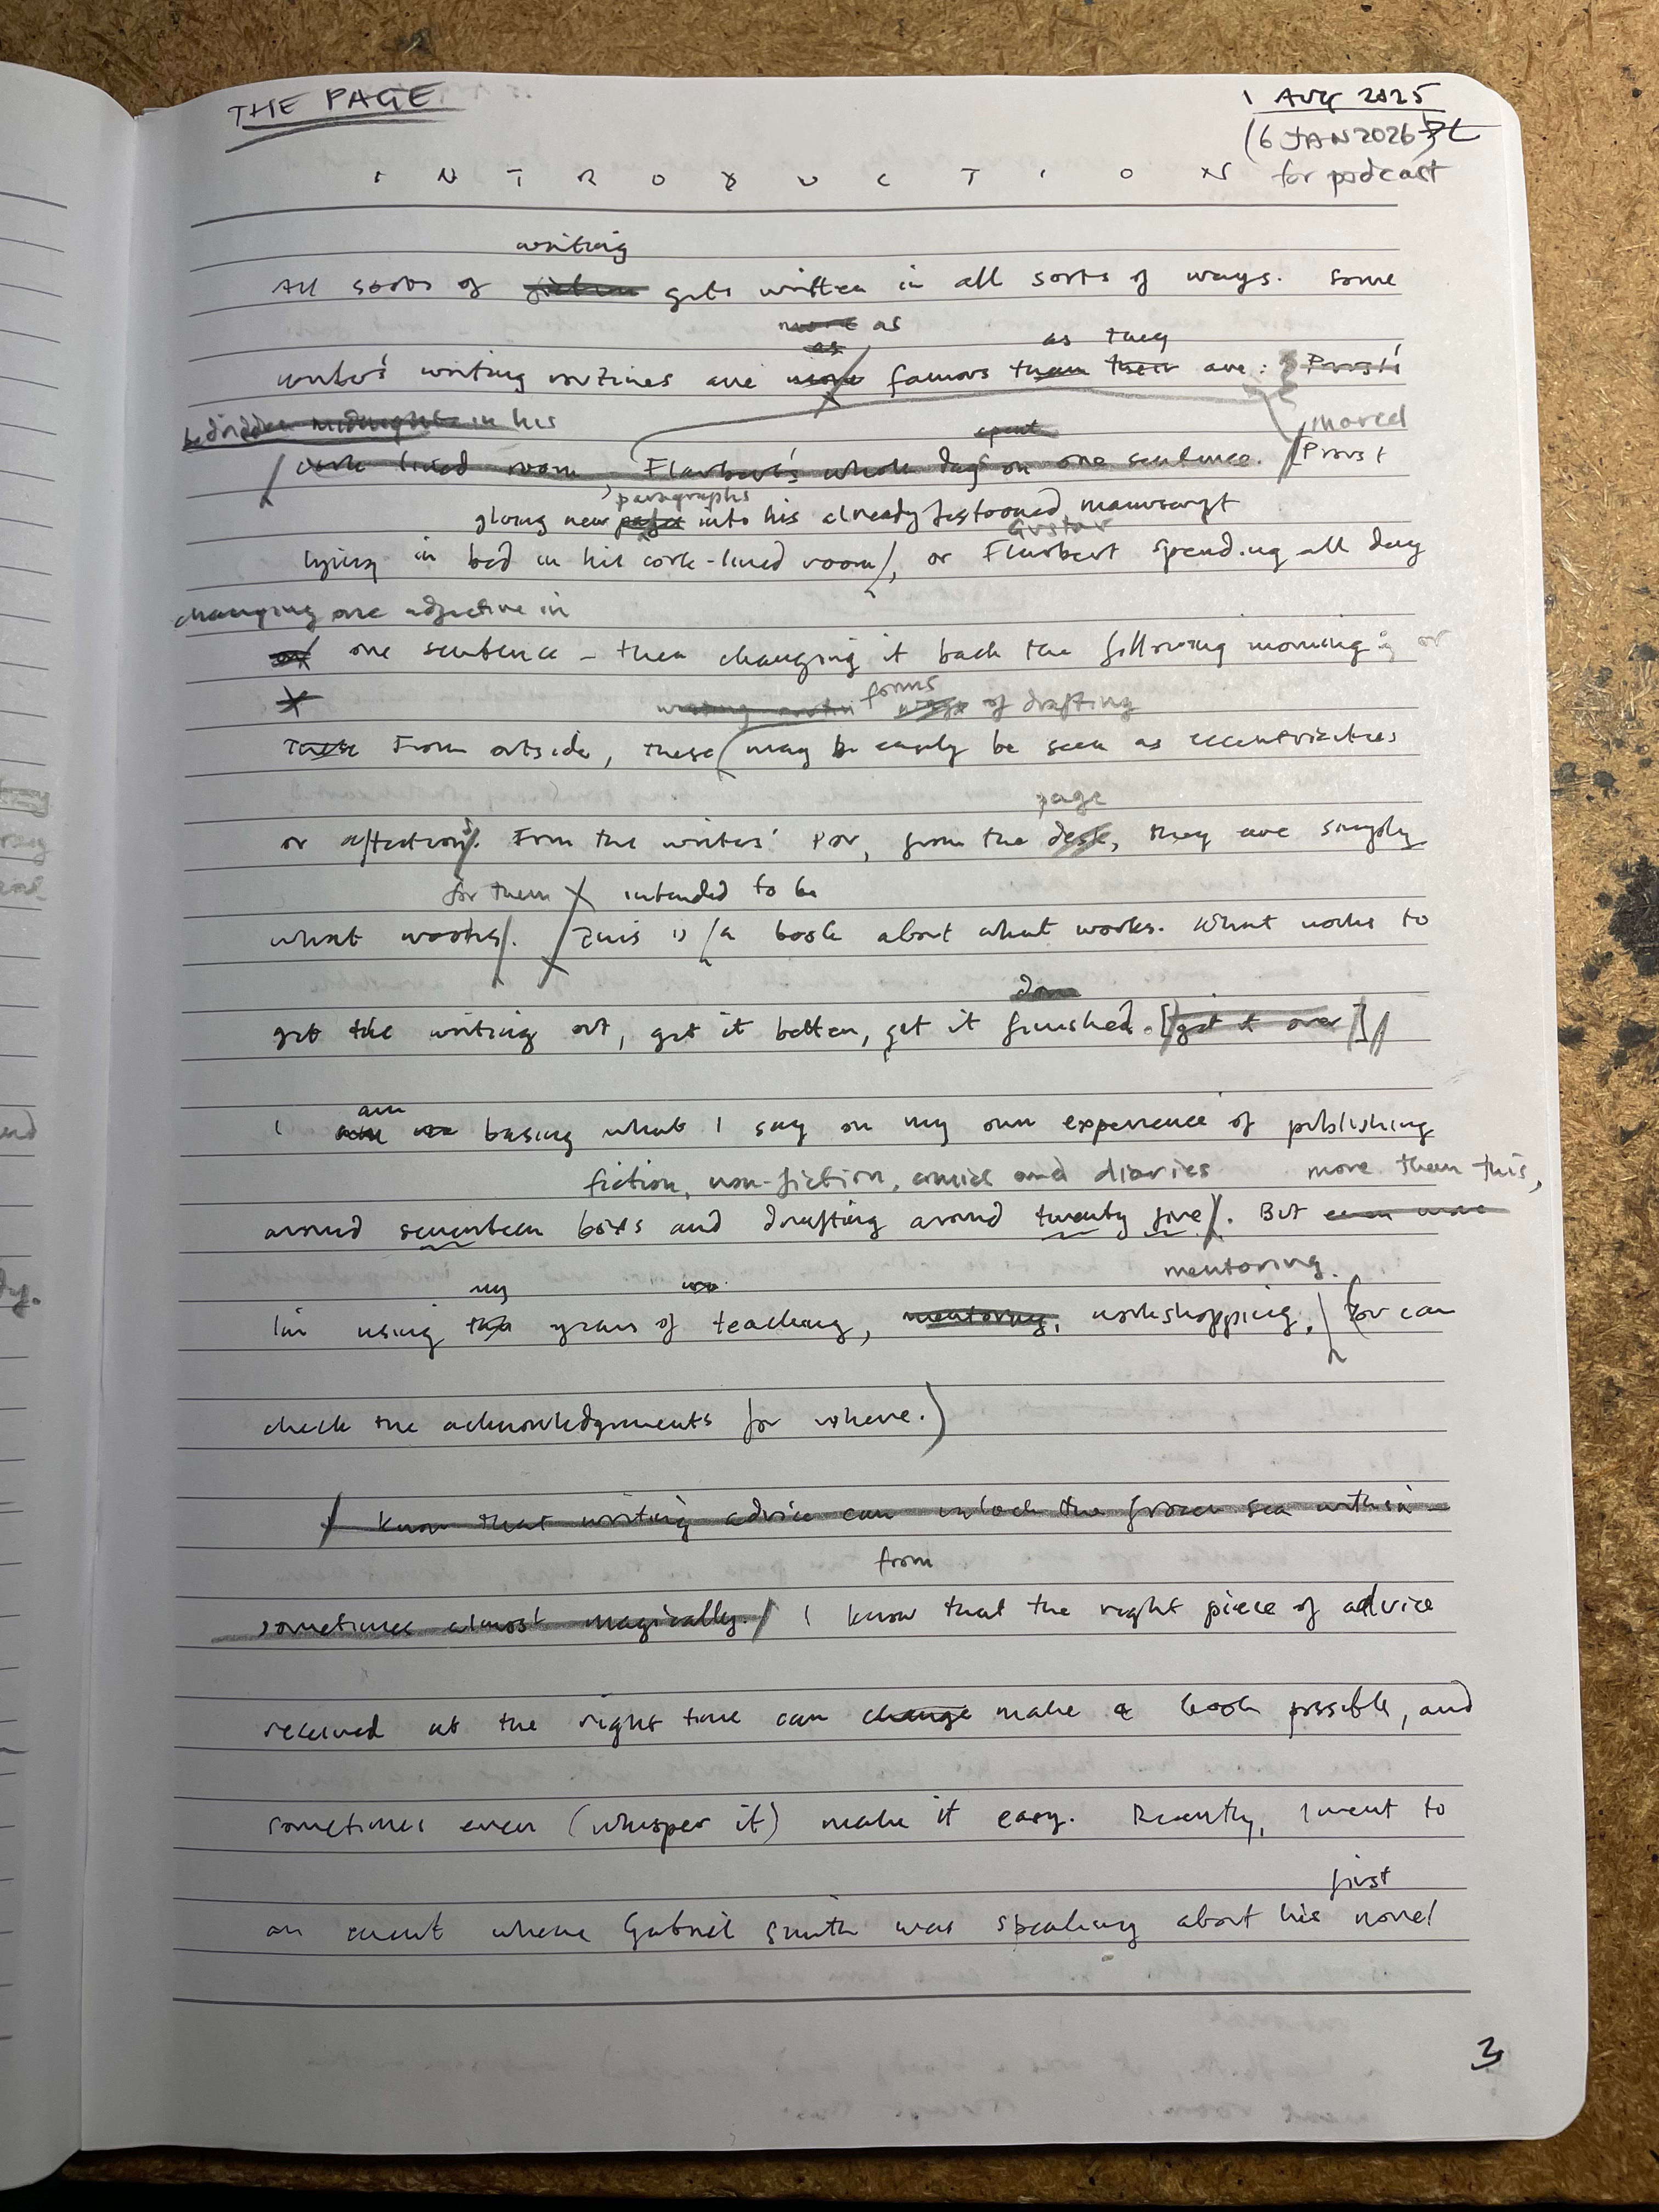 THE PAGE
1 AUG 2025
(6 JAN 2026)
for podcast
INTRODUCTION
writing
All sorts of fiction gets written in all sorts of ways. Some
more as
as as they
writers' writing routines are more famous than their are: Proust's
bedridden midnights in his
Marcel
spent
cork lined room – Flaubert's whole days on one sentence. Proust
, paragraphs
gluing new pages into his already festooned manuscript
Gustav
lying in bed in his cork-lined room, or Flaubert spending all day
changing one adjective in
on one sentence – then changing it back the following morning; or
forms
writing routin ways of drafting
These From outside, these may be easily be seen as eccentricities
page
or affections. From the writers' POV, from the desk, they are simply
for them intended to be
what works. This is a book about what works. What works to
done
get the writing out, get it better, get it finished. [get it over]
am
I basing what I say on my own experience of publishing
fiction, non-fiction, comics and diaries more than this,
around seventeen books and drafting around twenty five. But even more
mentoring.
my
I'm using the years of teaching, mentoring, workshopping. (You can
check the acknowledgements for where.)
I know that writing advice can unlock the frozen sea within –
from
sometimes almost magically. I know that the right piece of advice
received at the right time can change make a book possible, and
sometimes even (whisper it) make it easy. Recently, I went to
first
an event where Gabriel Smith was speaking about his novel
3